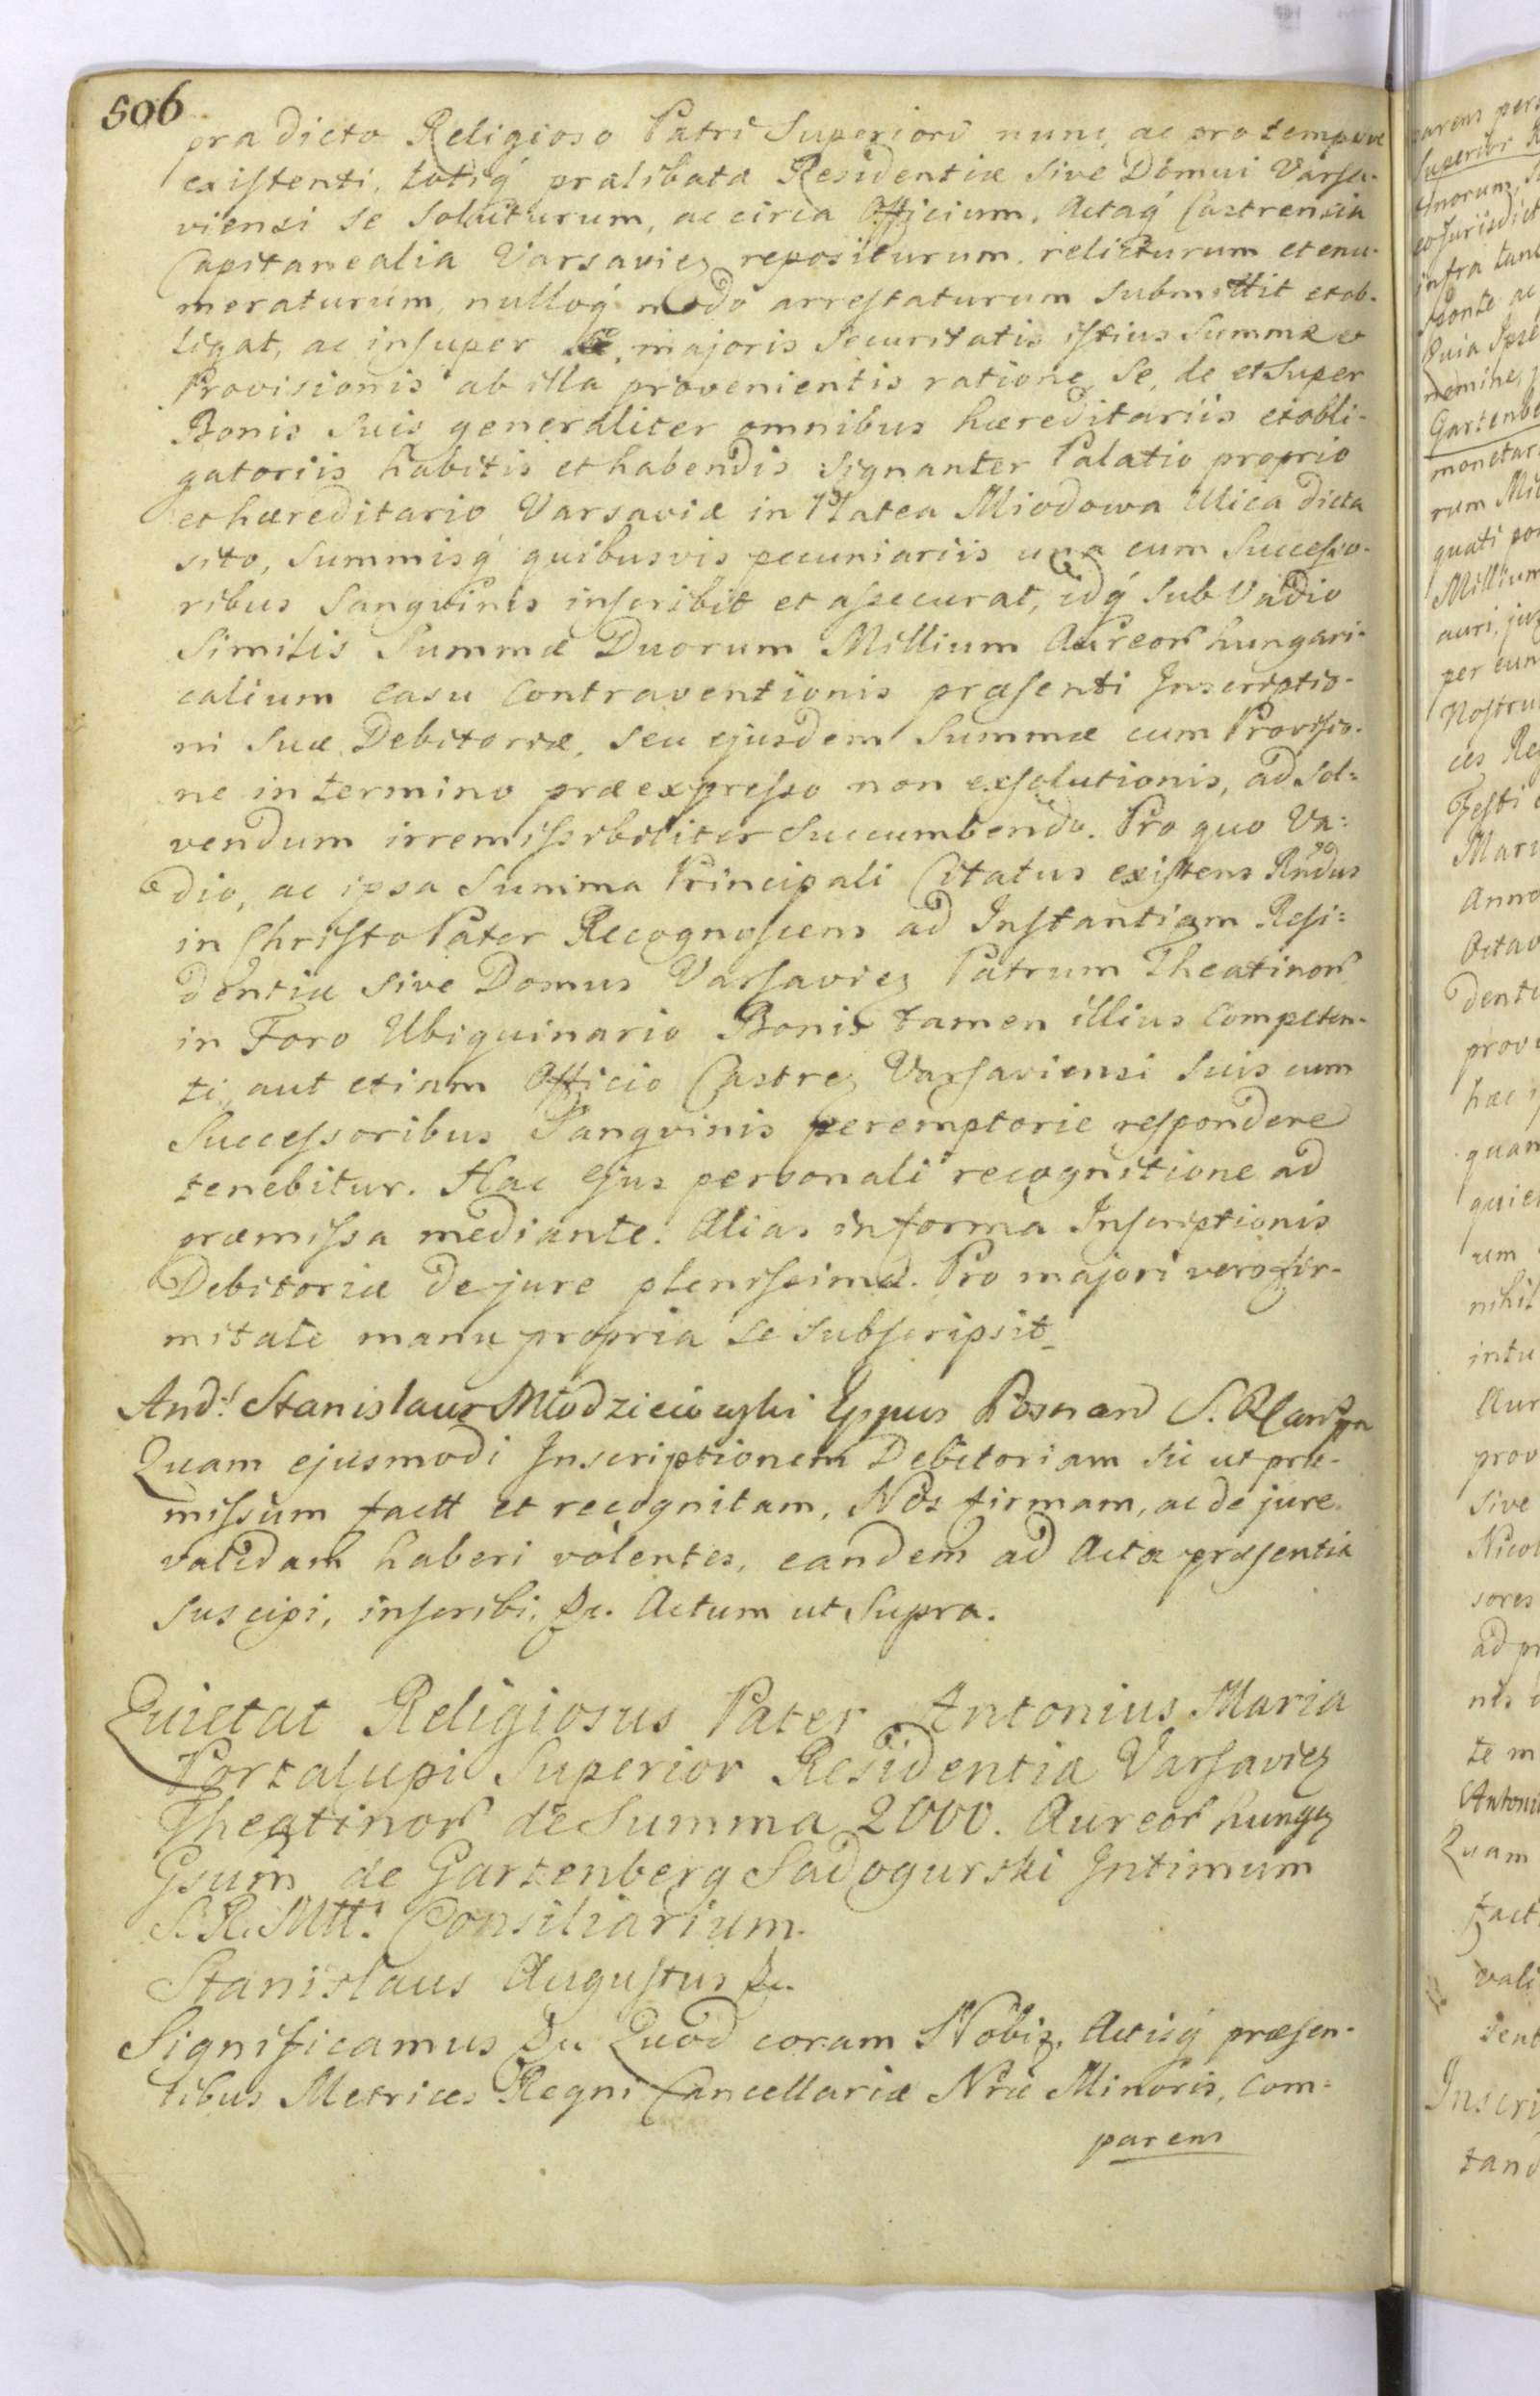 506
prædicto Religioso Patri Superiori nunc, ac pro tempore
existenti, totiq́ prælibatæ Residentiæ sive Domui Varsa-
viensi se soluturum, ac circa Officium, Actaq́ Castrensia
Capitanealia Varsavien repositurum, relicturum et enu-
meraturum, nulloq́ modo arrestaturum submittit et ob-
ligat, ac insuper majoris securitatis istius Summæ et
Provisionis ab illa provenientis ratione, se, de et super
Bonis suis generaliter omnibus hæreditariis et obli-
gatoriis habitis et habendis signanter Palatio proprio
et hæreditario Varsaviæ in Platea Miodowa Ulica dicta
sito, Summisq́ quibusvis pecuniariis una cum Successo-
ribus Sangvinis inscribit et assecurat, idq́ sub Vadio
Similis Summæ Duorum Millium Aureor hungari-
calium casu contraventionis præsenti Inscriptio-
ni suæ Debitoriæ, seu ejusdem Summæ cum Provisio-
ne in termino præexpresso non exsolutionis, ad sol-
vendum irremissibiliter succumbendo. Pro quo Va-
dio, ac ipsa Summa Principali Citatus existens Rndus
in Christo Pater Recognoscens ad Instantiam Resi-
dentiæ sive Domus Varsavien Patrum Theatinor
in Foro Ubiquinario Bonis tamen illius competen-
ti, aut etiam Officio Castren Varsaviensi suis cum
Successoribus Sangvinis peremptorie respondere
tenebitur. Hac ejus personali recognitione ad
præmissa mediante. Alias in forma Inscriptionis
Debitoriæ de jure plenissima. Pro majori vero fir-
mitate manu propria se subscripsit
And: Stanislaus Młodzieiowski Eppus Posnan S.R.
Quam ejusmodi Inscriptionem Debitoriam sic ut præ-
missum factt et recognitam, Nos firmam, ac de jure
validam haberi volentes, eandem ad Acta præsentia
suscipi, inscribi, &c. Actum ut Supra.
Quietat Religiosus Pater Antonius Maria
Portalupi Superior Residentiæ Varsavien
Theatinor de Summa 2000. Aureor hungen
Gsum de Gartenberg Sadogurski Intimum
S.R.Mtt: Consiliarium.
Stanislaus Augustus &c.
Significamus &c. Quod coram Nobis, Actisq́ præsen-
tibus Metrices Regni Cancellariæ Nræ Minoris, com-
parens